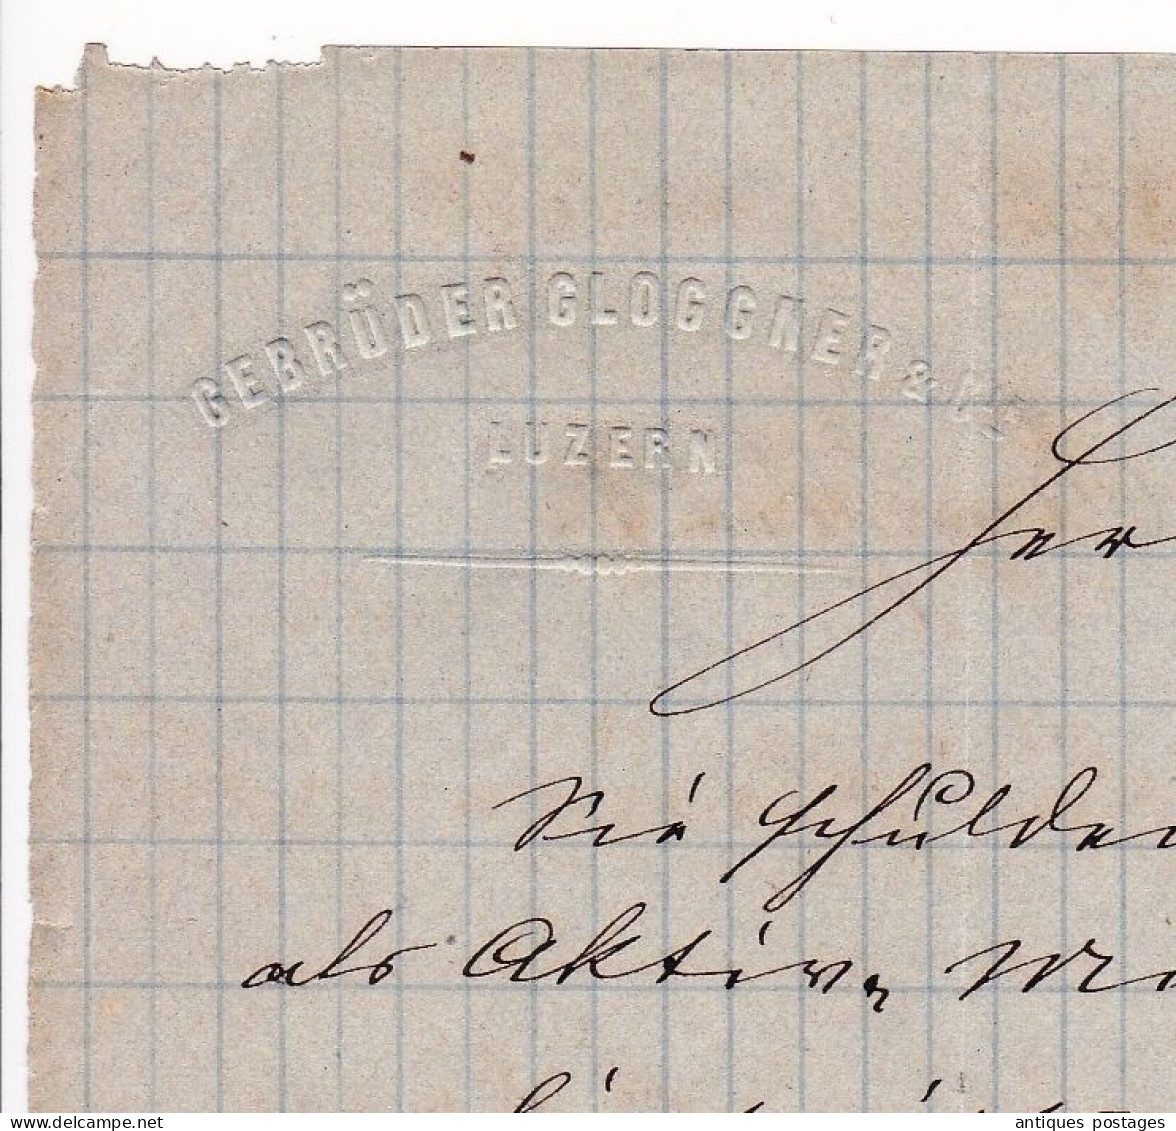 GEBRÜDER GLOGGNER & Cie
LUZERN
Herr
Sie schulden
als Aktiv
delcampe.net
antiques postages